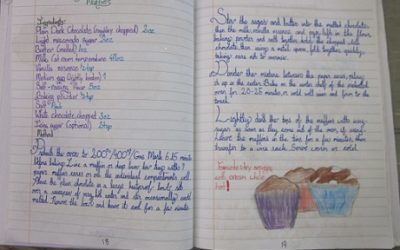 Muffins
Ingredients:
Plain Dark Chocolate (roughly chopped) 2oz
Light muscovado sugar 2oz
Butter (melted) 1oz
Milk (at room temperature)
Vanilla essence ½tsp
Medium egg (lightly beaten) 1
Self-raising flour 5oz
Baking powder ½tsp
Salt Pinch
White chocolate chopped 3oz
Icing sugar (optional) 2tsp
Method
Preheat the oven to 200°/400°F/Gas Mark 6 15 minutes
before baking. Line a muffin or deep tray with 7
paper muffin cases or oil the individual compartments well.
Place the plain chocolate in a large heatproof bowl set
over a saucepan of very hot water and stir occasionally until
melted. Remove the bowl and leave it to cool for a few minutes.
18
Stir the sugar and butter into the melted chocolate
then the milk, vanilla essence and egg. Sift in the flour,
baking powder and salt together with the chopped white
chocolate then using a metal spoon, fold together quickly,
taking care not to overmix.
Divide the mixture between the paper cases, piling
it up in the centre. Bake on the centre shelf of the preheated
oven for 20-25 minutes, or until well risen and firm to the
touch.
Lightly dust the tops of the muffins with icing
sugar as soon as they come out of the oven, if using.
Leave the muffins in the tins for a few minutes, then
transfer to a wire rack. Serve warm or cold.
19